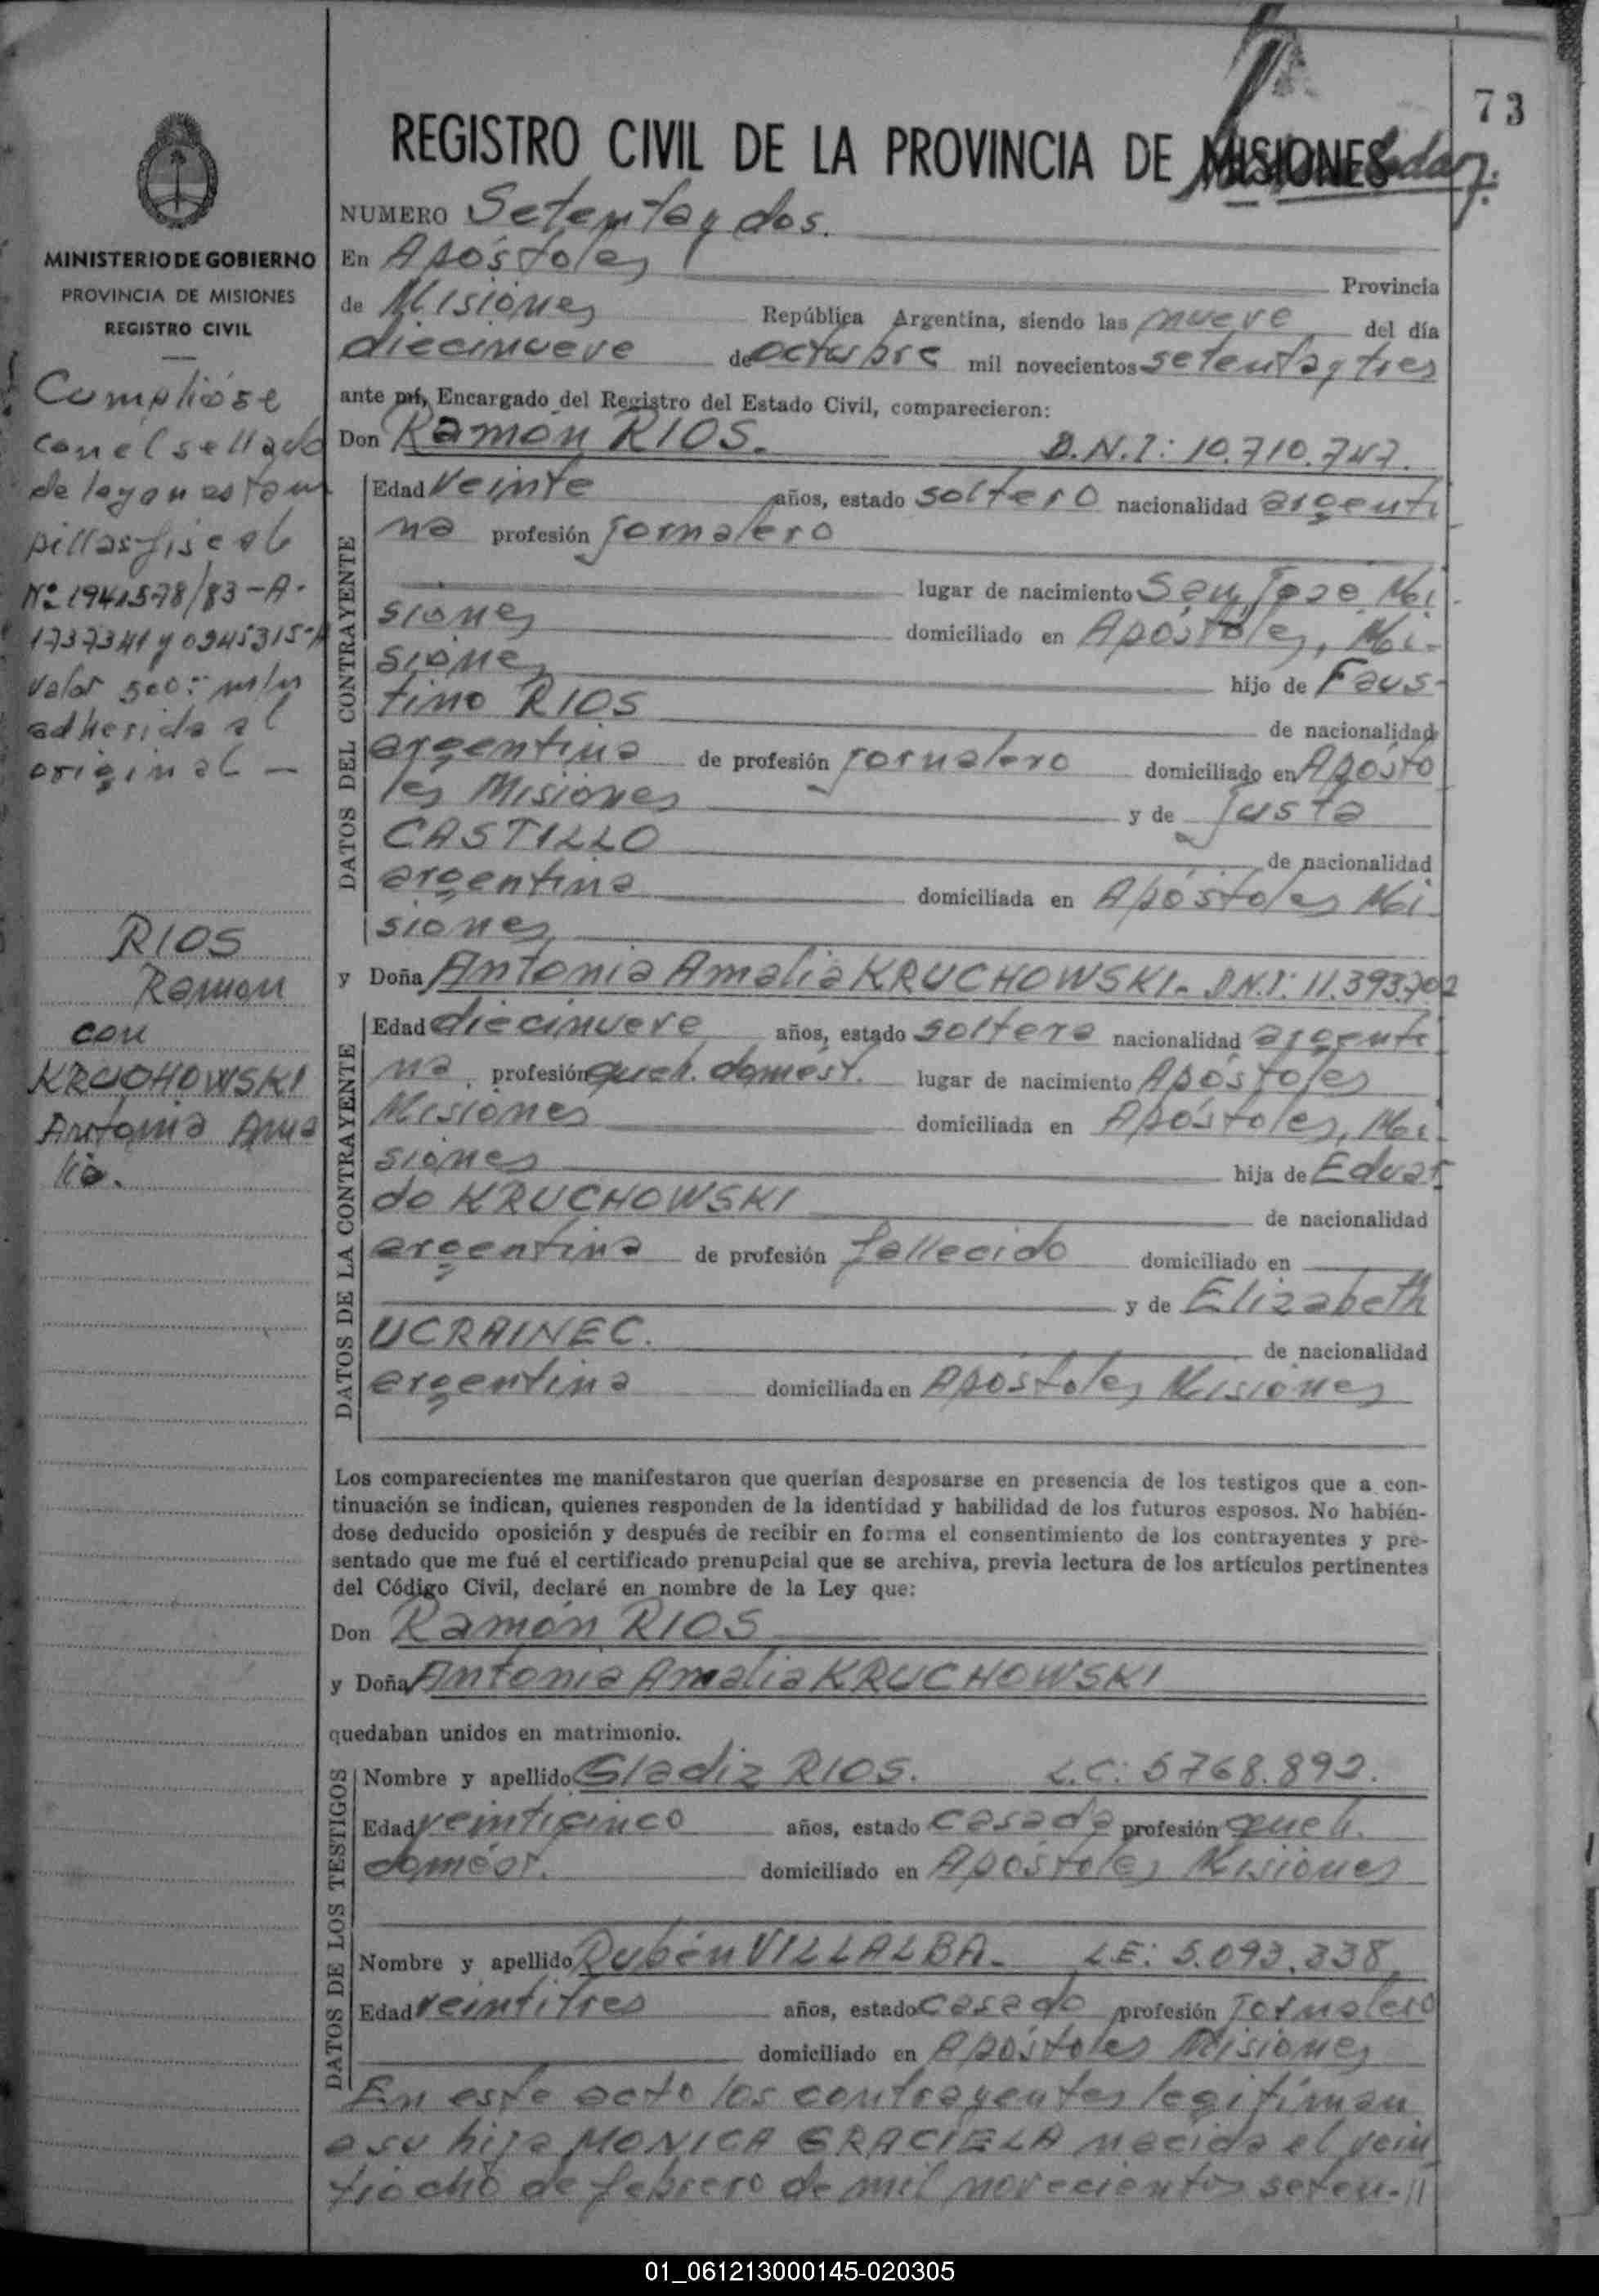 73
REGISTRO CIVIL DE LA PROVINCIA DE MISIONES
NUMERO Setenta y dos.
MINISTERIO DE GOBIERNO
PROVINCIA DE MISIONES
REGISTRO CIVIL
En Apóstoles Provincia
de Misiones República Argentina, siendo las nueve del día
diecinueve de octubre mil novecientos setenta y tres
ante mí, Encargado del Registro del Estado Civil, comparecieron:
Don Ramón RIOS. D.N.I: 10.710.747.
Cumplióse
con el sellado
de ley en estam
pillas fiscal
Nº 1941578/83-A-
1737341 y 0945315-A
valor 500:- m/n
adherida al
original —
DATOS DEL CONTRAYENTE
Edad Veinte años, estado soltero nacionalidad argenti
na profesión Jornalero
lugar de nacimiento San José Mi
siones domiciliado en Apóstoles, Mi-
siones hijo de Faus-
tino RIOS de nacionalidad
argentina de profesión jornalero domiciliado en Apósto
les Misiones y de Justa
CASTILLO de nacionalidad
argentina domiciliada en Apóstoles Mi
siones
RIOS
Ramon
con
KRUCHOWSKI
Antonia Ama
lia.
y Doña Antonia Amalia KRUCHOWSKI.- D.N.I: 11.393.702
DATOS DE LA CONTRAYENTE
Edad diecinueve años, estado soltera nacionalidad argenti
na profesión queh. domést. lugar de nacimiento Apóstoles
Misiones domiciliada en Apóstoles, Mi-
siones hija de Eduar
do KRUCHOWSKI de nacionalidad
argentina de profesión fallecido domiciliado en
y de Elizabeth
UCRAINEC. de nacionalidad
argentina domiciliada en Apóstoles Misiones
Los comparecientes me manifestaron que querían desposarse en presencia de los testigos que a con-
tinuación se indican, quienes responden de la identidad y habilidad de los futuros esposos. No habién-
dose deducido oposición y después de recibir en forma el consentimiento de los contrayentes y pre-
sentado que me fué el certificado prenupcial que se archiva, previa lectura de los artículos pertinentes
del Código Civil, declaré en nombre de la Ley que:
Don Ramón RIOS
y Doña Antonia Amalia KRUCHOWSKI
quedaban unidos en matrimonio.
DATOS DE LOS TESTIGOS
Nombre y apellido Gladiz RIOS. L.C: 5768.892.
Edad veinticinco años, estado casada profesión queh.
domést. domiciliado en Apóstoles Misiones
Nombre y apellido Rubén VILLALBA.- L.E: 5.093.338
Edad veintitres años, estado casado profesión Jornalero
domiciliado en Apóstoles Misiones
En este acto los contrayentes legitiman
a su hija MONICA GRACIELA nacida el vein
tiocho de febrero de mil novecientos seten-//
01_061213000145-020305